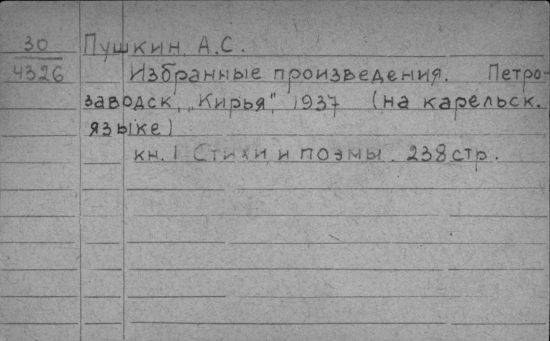 30 Пушкин, А.С.
4326 Избранные произведения. Петро-
заводск, „Кирья", 1937 (на карельск.
языке)
кн. 1 Стихи и поэмы. 238 стр.